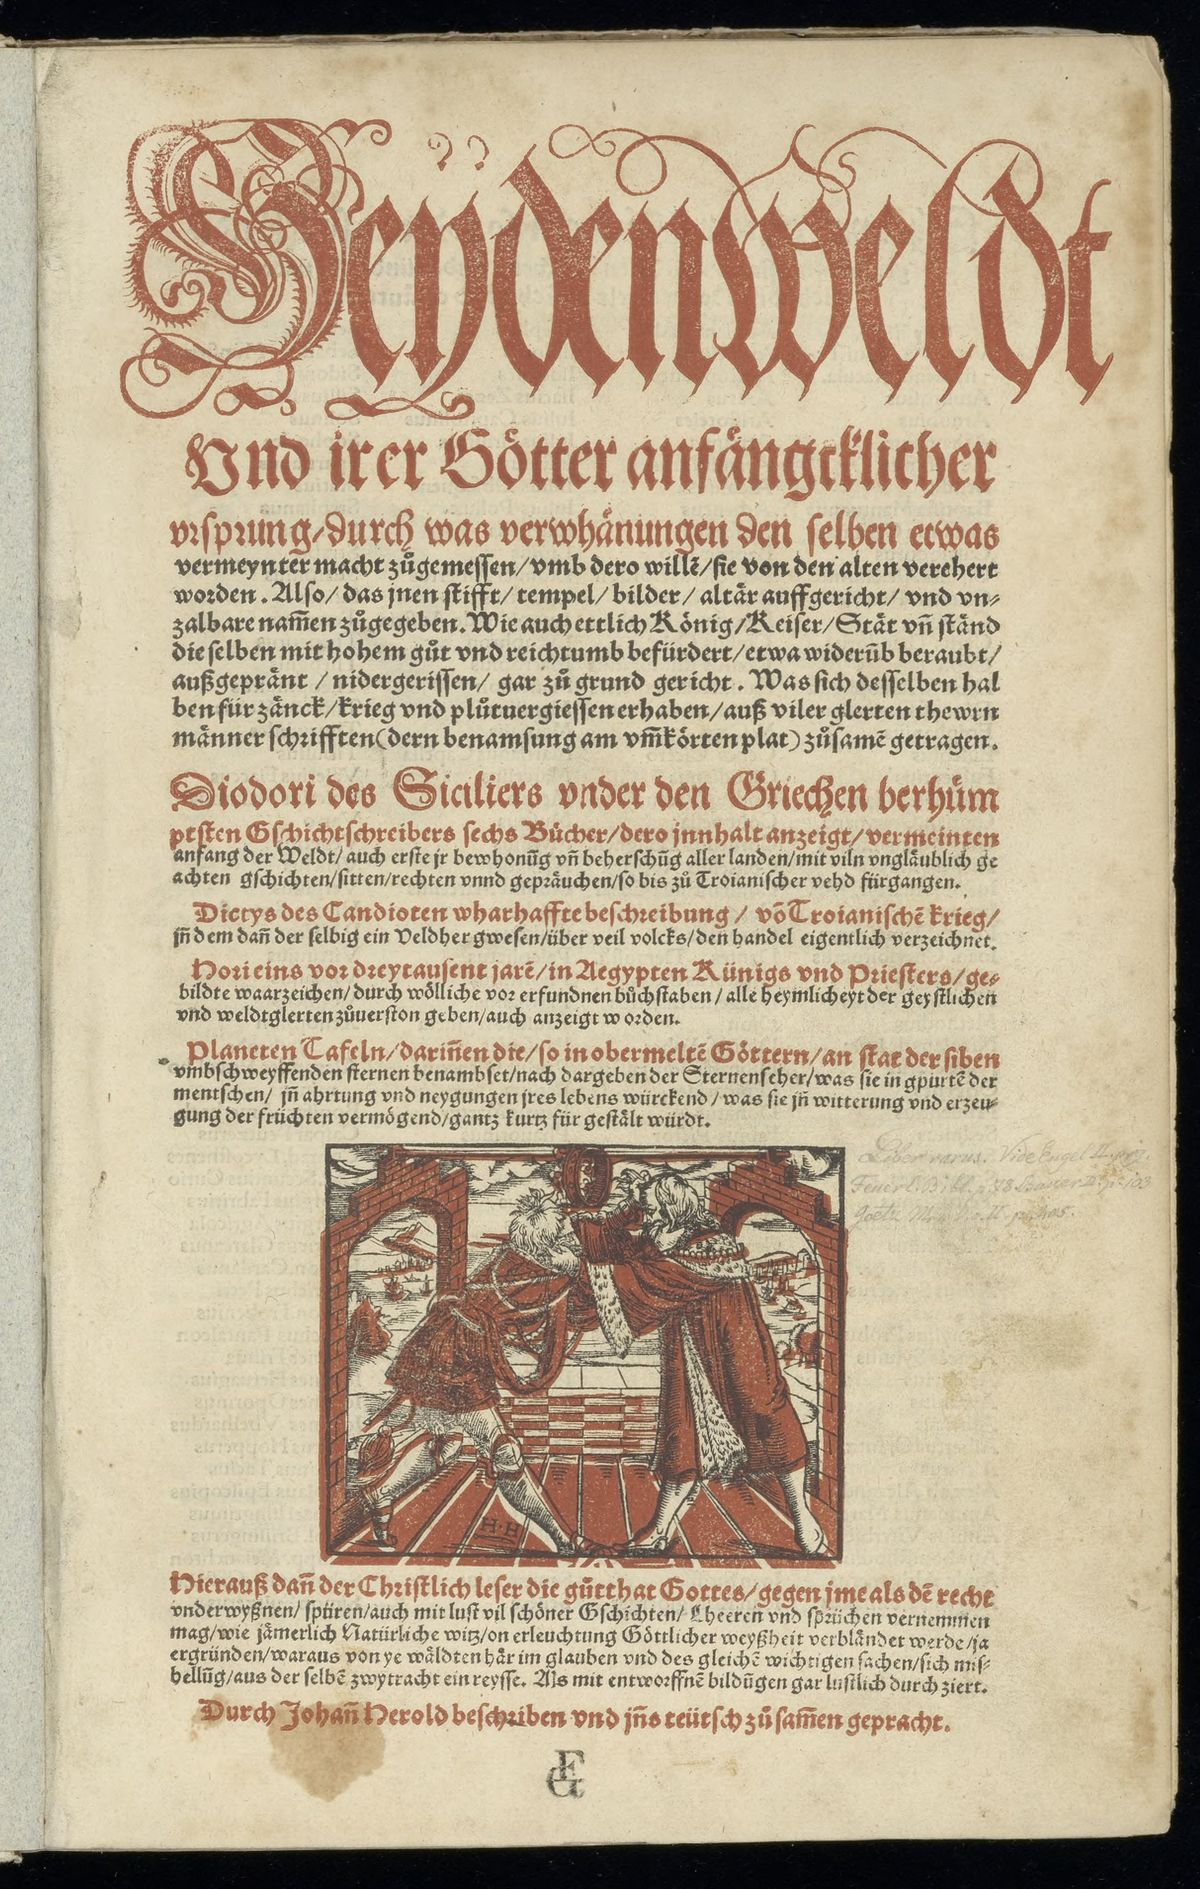 Heydenweldt
Vnd irer Götter anfängcklicher
vrsprung/durch was verwhänungen den selben etwas
vermeynter macht zůgemessen/vmb dero willẽ/sie von den alten verehert
worden. Also/ das jnen stifft/ tempel/ bilder/ altär auffgericht/ vnd vn⸗
zalbare nam̃en zůgegeben. Wie auch ettlich König/Keiser/Stät vñ ständ
die selben mit hohem gůt vnd reichtumb befürdert/etwa widerũb beraubt/
außgepränt / nidergerissen/ gar zů grund gericht. Was sich desselben hal
ben für zänck/krieg vnd plůtuergiessen erhaben/auß viler glerten thewrn
männer schrifften(dern benamsung am vm̃körten plat) zůsamẽ getragen.
Diodori des Siciliers vnder den Griechen berhüm
ptsten Gschichtschreibers sechs Bücher/dero jnnhalt anzeigt/vermeinten
anfang der Weldt/auch erste jr bewhonũg vñ beherschũg aller landen/mit viln vngläublich ge
achten gschichten/sitten/rechten vnnd gepräuchen/so bis zů Troianischer vehd fürgangen.
Dictys des Candioten wharhaffte beschreibung / võ Troianischẽ krieg/
jñ dem dañ der selbig ein Veldher gwesen/über veil volcks/den handel eigentlich verzeichnet.
Hori eins vor dreytausent jarẽ/in Aegypten Künigs vnd Priesters/ge⸗
bildte waarzeichen/durch wölliche vor erfundnen bůchstaben / alle heymlicheyt der geystlichen
vnd weldtglerten zůuerston geben/auch anzeigt worden.
Planeten Tafeln/dariñen die/so in obermeltẽ Göttern/an stat der siben
vmbschweyffenden sternen benambset/nach dargeben der Sternenseher/was sie in gpurtẽ der
mentschen/ jñ ahrtung vnd neygungen jres lebens würckend / was sie jñ witterung vnd erzeu⸗
gung der früchten vermögend/gantz kurtz für gestält würdt.
Liber rarus. Vide Engel II.
Feuerl. Bibl. p. 103
Goetz
H·H
Hierauß dañ der Christlich leser die gůtthat Gottes/gegen jme als dẽ recht
vnderwyßnen/ spüren/auch mit lust vil schöner Gschichten/ Lheeren vnd sprüchen vernemmen
mag/wie jämerlich Natürliche witz/on erleuchtung Göttlicher weyßheit verbländet werde/ja
ergründen/waraus von ye wäldten här im glauben vnd des gleichẽ wichtigen sachen/sich mis⸗
hellũg/aus der selbẽ zwytracht ein reysse. Als mit entworffnẽ bildũgen gar lustlich durch ziert.
Durch Johañ Herold beschriben vnd jñs teütsch zů sam̃en gepracht.